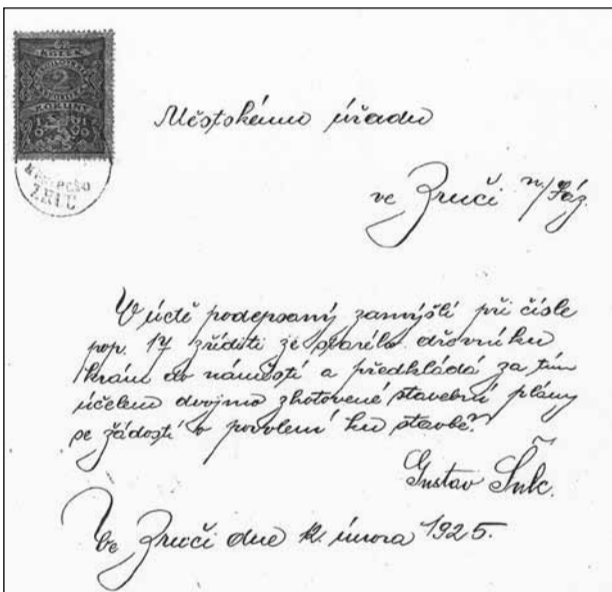 KOLEK
2
KORUNY
Městskému úřadu
ve Zruči n/Sáz.
V úctě podepsaný zamýšlí při čísle
pop. 17 zříditi ze starého dřevníku
krám do náměstí a předkládá za tím
účelem dvojmo zhotovené stavební plány
se žádostí o povolení ku stavbě.
Gustav Šulc.
Ve Zruči dne 12. února 1925.